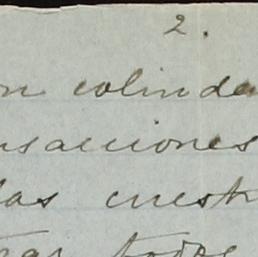 2.
n colinda
nsacciones
las cuest
todos